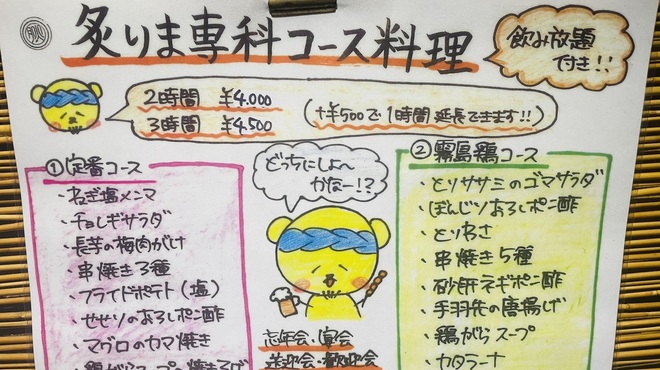 炙りま専科コース料理
飲み放題
付き!!
2時間 ¥4.000
3時間 ¥4.500
(+¥500で1時間延長できます!!)
①定番コース
・ねぎ塩メンマ
・チョレギサラダ
・長芋の梅肉がけ
・串焼き3種
・フライドポテト(塩)
・せせりのおろしポン酢
・マグロのカマ焼き
どっちにしよ〜
かなー!?
忘年会・宴会
送迎会・歓迎会
②霧島鶏コース
・とりササミのゴマサラダ
・ぼんじりおろしポン酢
・とりわさ
・串焼き5種
・砂肝ネギポン酢
・手羽先の唐揚げ
・鶏がらスープ
・カタラーナ